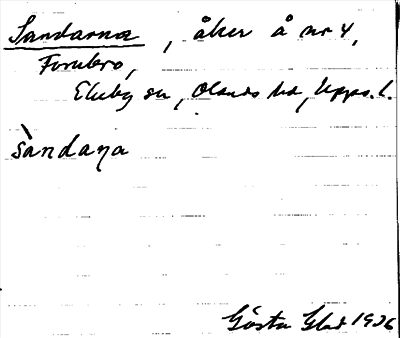 Sandarna, åker å nr 4,
Forubro,
Ekeby sn, Olands hd, Upps. l.
sàndaṇa
Gösta 1926